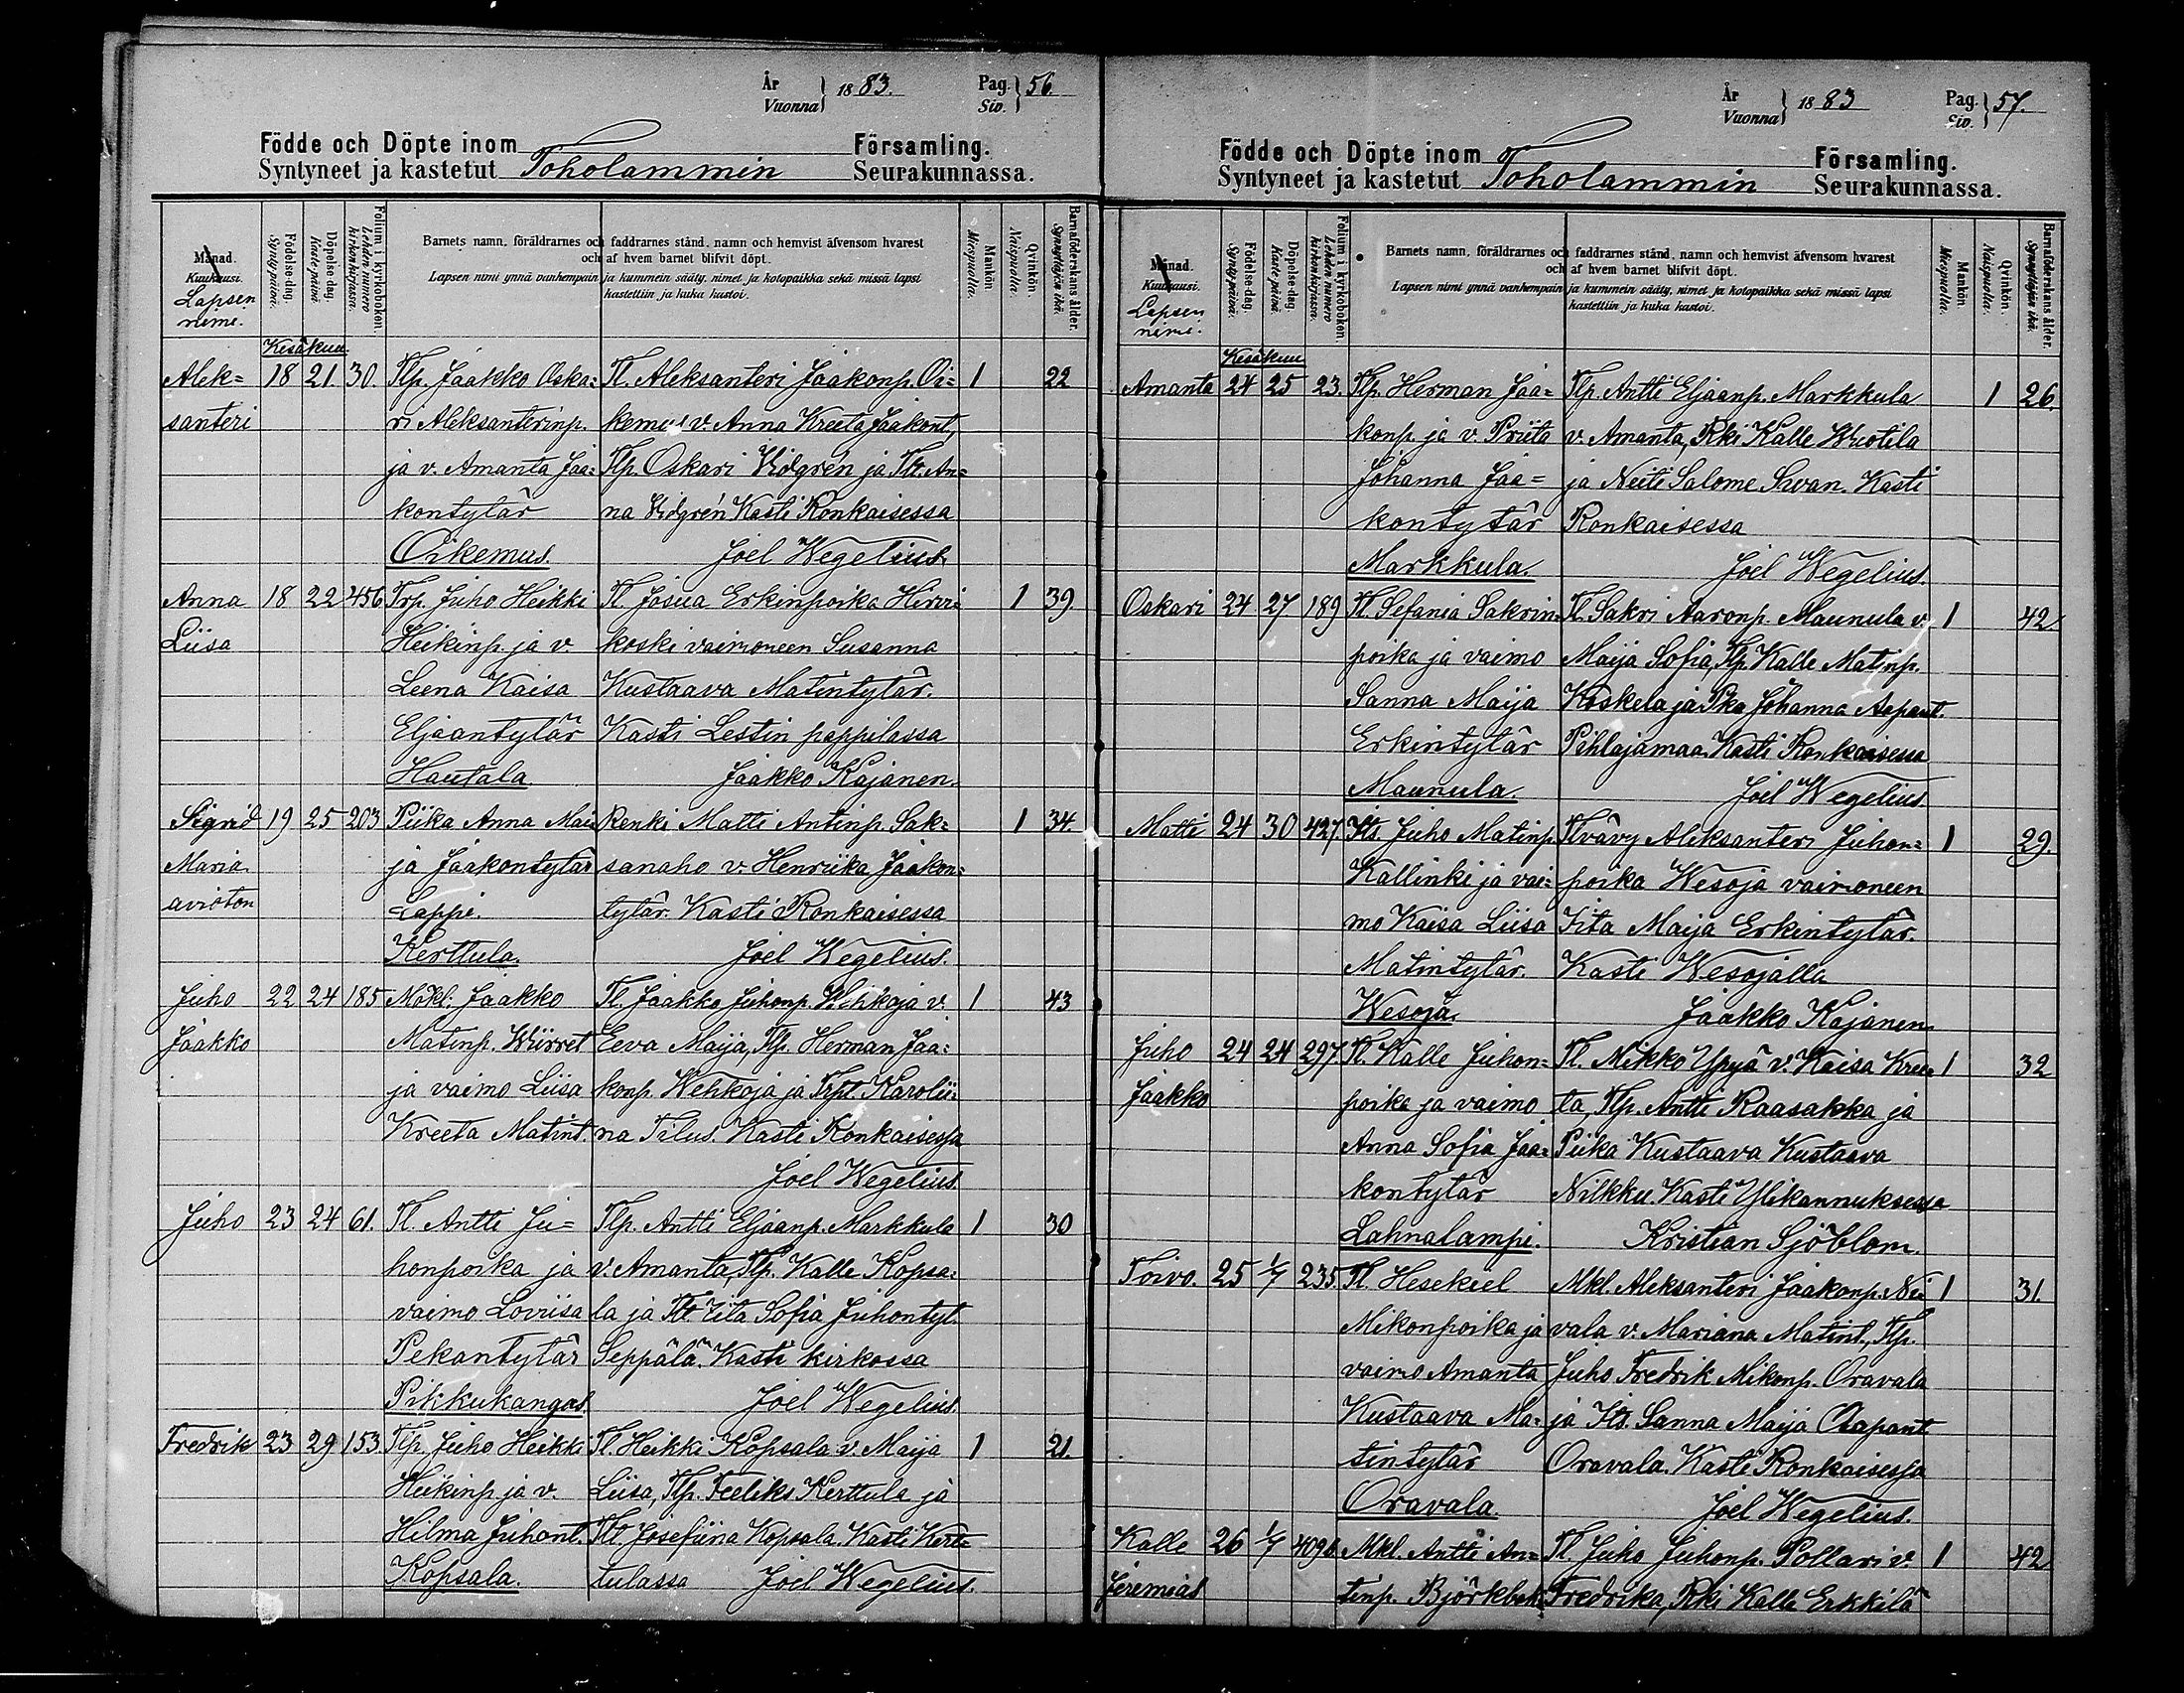 År Vuonna } 1883. Pag. Siv. } 56.
Födde och Döpte inom Församling.
Syntyneet ja kastetut Toholammin Seurakunnassa.
Månad. Kuukausi. Lapsen nimi.
Födelse-dag. Syntypäivä.
Döpelse-dag. Kastepäivä.
Folium i kyrkoboken. Lehden numero kirkonkirjassa.
Barnets namn, föräldrarnes och faddrarnes stånd, namn och hemvist äfvensom hvarest
och af hvem barnet blifvit döpt.
Lapsen nimi ynnä vanhempain ja kummein sääty, nimet ja kotopaikka sekä missä lapsi
kastettiin ja kuka kastoi.
Mankön. Miespuolia.
Qvinkön. Naispuolia.
Barnaföderskans ålder. Synnyttäjän ikä.
Kesäkuu
Alek= 18 21. 30. Tlp. Jaakko Oska= Tl. Aleksanteri Jaakonp. Oi= 1 22
santeri ri Aleksanterinp. kemus v. Anna Kreeta Jaakont,
ja v. Amanta Jaa= Tlp. Oskari Vidgrén ja Tlt. An=
kontytär na Vidgrén Kasti Ronkaisessa
Oikemus. Joel Wegelius.
Anna 18 22 456 Trp. Juho Heikki Tl. Josua Erkinpoika Hirvi 1 39.
Liisa Heikinp. ja v. koski vaimoneen Susanna
Leena Kaisa Kustaava Matintytär.
Eljaantytär Kasti Lestin pappilassa
Hautala Jaakko Kajanen.
Sigrid 19 25 203 Piika Anna Mai= Renki Matti Antinp. Sak= 1 34.
Maria ja Jaakontytär sanaho v. Henriika Jaakon=
avioton Lappi. tytär. Kasti Ronkaisessa
Kerttula. Joel Wegelius.
Juho 22 24 185 Mökl. Jaakko Tl. Jaakko Juhonp. Wehkaja v. 1 43
Jaakko Matinp. Wiirret Eeva Maija, Tlp. Herman Jaa=
ja vaimo Liisa konp. Wehkoja ja Trpt. Karolii=
Kreeta Matint. na Tilus. Kasti Ronkaisessa
Joel Wegelius.
Juho 23 24 61. Tl. Antti Ju= Tlp. Antti Eljaanp. Markkula 1 30
honpoika ja v. Amanta, Tlp. Kalle Kopsa=
vaimo Loviisa la ja Tlt. Iita Sofia Juhontyt.
Pekantytär Seppälä. Kasti kirkossa
Pikkukangas. Joel Wegelius.
Fredrik 23 29 153. Tlp. Juho Heikki Tl. Heikki Kopsala v. Maija 1 21.
Heikinp. ja v. Liisa, Tlp. Feeliks Kerttula ja
Hilma Juhont. Tlt. Josefiina Kopsala. Kasti Kert=
Kopsala. tulassa Joel Wegelius.
År Vuonna } 1883 Pag. Siv. } 57.
Födde och Döpte inom Församling.
Syntyneet ja kastetut Toholammin Seurakunnassa.
Månad. Kuukausi. Lapsen nimi.
Födelse-dag. Syntypäivä.
Döpelse-dag. Kastepäivä.
Folium i kyrkoboken. Lehden numero kirkonkirjassa.
Barnets namn, föräldrarnes och faddrarnes stånd, namn och hemvist äfvensom hvarest
och af hvem barnet blifvit döpt.
Lapsen nimi ynnä vanhempain ja kummein sääty, nimet ja kotopaikka sekä missä lapsi
kastettiin ja kuka kastoi.
Mankön. Miespuolia.
Qvinkön. Naispuolia.
Barnaföderskans ålder. Synnyttäjän ikä.
Kesäkuu
Amanta 24 25 23. Tlp. Herman Jaa= Tlp. Antti Eljaanp. Markkula 1 26.
konp. ja v. Priita v. Amanta, Rki Kalle Wuotila
Johanna Jaa= ja Neiti Salome Savan. Kasti
kontytär Ronkaisessa
Markkula. Joel Wegelius.
Oskari 24 27 189 Tl. Sefania Sakrin= Tl. Sakri Aaronp. Maunula v. 1 42
poika ja vaimo Maija Sofia, Tlp. Kalle Matinp.
Sanna Maija Koskela ja Pka Johanna Aapant.
Erkintytär Pihlajamaa. Kasti Ronkaisessa
Maunula. Joel Wegelius
Matti 24 30 427. Its. Juho Matinp. Tlvävy Aleksanteri Juhon= 1 29.
Kallinki ja vai= poika Wesoja vaimoneen
mo Kaisa Liisa Iita Maija Erkintytär.
Matintytär. Kasti Wesojalla
Wesoja. Jaakko Kajanen
Juho 24 24 297. Tl. Kalle Juhon= Tl. Mikko Ypyä v. Kaisa Kree= 1 32
Jaakko poika ja vaimo ta, Tlp. Antti Raasakka ja
Anna Sofia Jaa= Piika Kustaava Kustaava
kontytär Nilkku. Kasti Ylikannuksessa
Lahnalampi. Kristian Sjöblom.
Toivo. 25 1/7 235. Tl. Hesekiel Mkl. Aleksanteri Jaakonp. 1 31.
Mikonpoika ja vala v. Mariana Matint., Tlp.
vaimo Amanta Juho Fredrik Mikonp. Oravala
Kustaava Ma= ja Its. Sanna Maija Aapant.
tintytär Oravala. Kasti Ronkaisessa
Oravala. Joel Wegelius.
Kalle 26 1/7 409 Mkl. Antti An= Tl. Juho Juhonp. Pollari v. 1 42
Jeremias tinp. Björkbak Fredrika, Rki Kalle Erkkilä